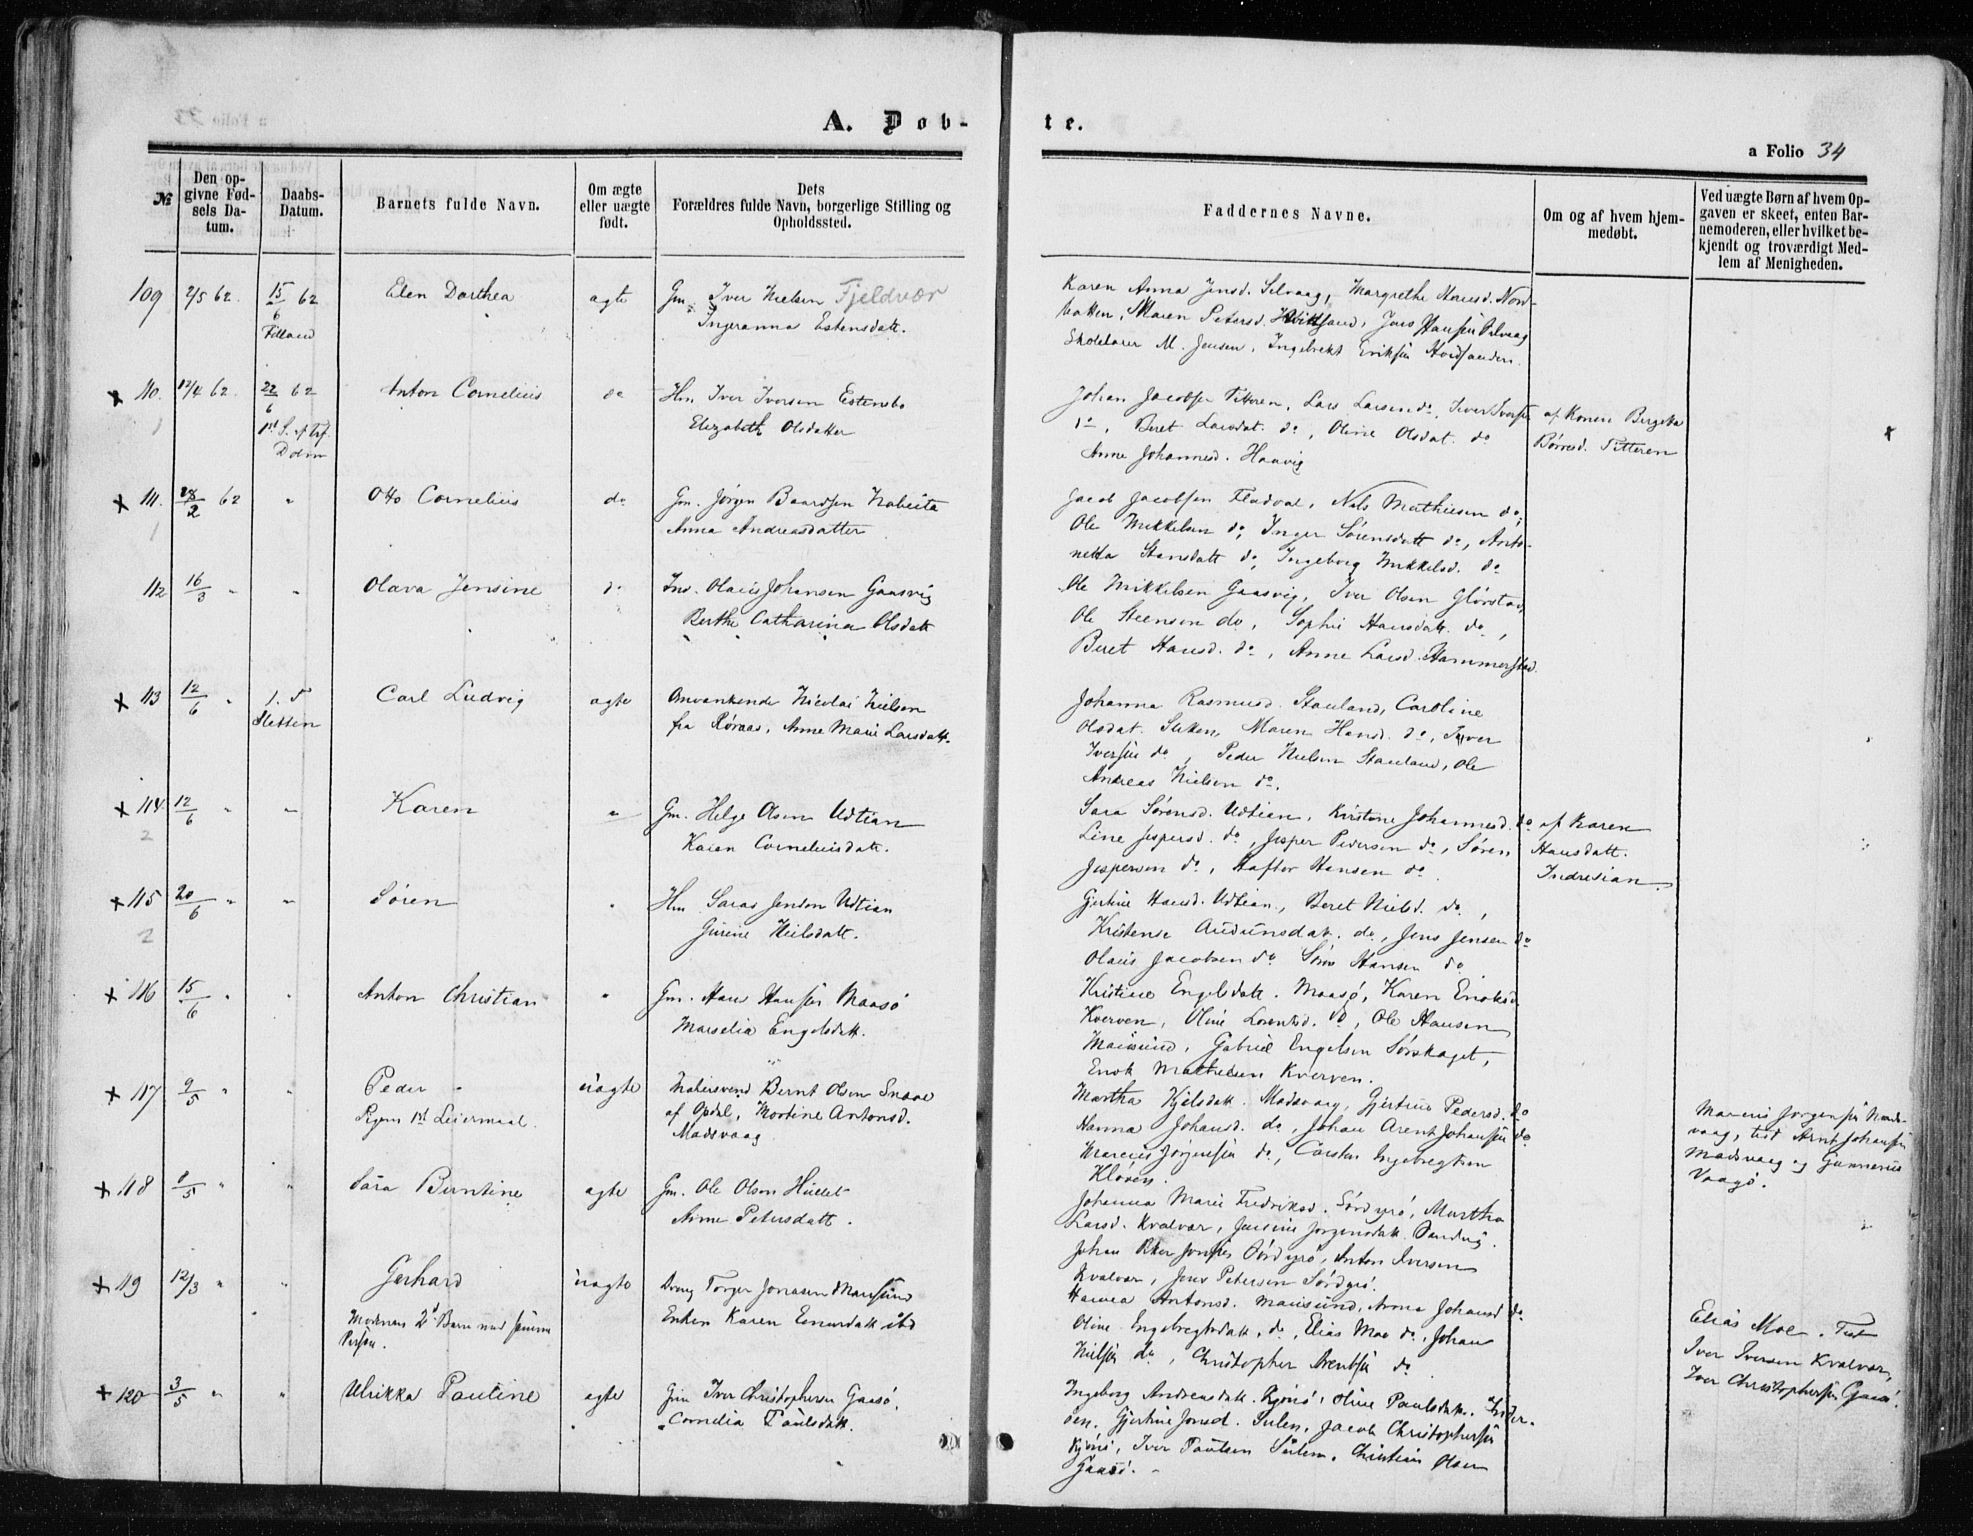 A. Døb-
te.
a Folio 34
№
Den op-
givne Fød-
sels Da-
tum.
Daabs-
Datum.
Barnets fulde Navn.
Om ægte
eller uægte
født.
Dets
Forældres fulde Navn, borgerlige Stilling og
Opholdssted.
Faddernes Navne.
Om og af hvem hjem-
medøbt.
Ved uægte Børn af hvem Op-
gaven er skeet, enten Bar-
nemoderen, eller hvilket be-
kjendt og troværdigt Med-
lem af Menigheden.
109 2/5 62. 15/6 62 Elen Dorthea ægte Gm. Iver Nielsen Fjeldvær
Filland Ingeranna Estensdatt.
Karen Anna Jensd. Selvaag, Margrethe Hansd. Nord-
bakken, Maren Petersd. Hvitsand, Jens Hansen Selvaag
Skolelærer M. Jensen, Ingebrekt Eriksen Hvidsanden.
x 110. 12/4 62. 22/6 62 Anton Cornelius do Hm Iver Iversen Estensbo
1st S. ef. Trf. Elizabeth Olsdatter
Dolm
Johan Jacobsen Titteren, Lars Larsen do, Iver Iversen
do, Beret Larsdat. do, Oline Olsdat. do
Anne Johannesd. Haavig
af Konen Bergitta
Børresd. Titteren
x 111. 28/2 62 " Otto Cornelius do Gm. Jørgen Baardsen
Anna Andreasdatter
Jacob Jacobsen, Nils Mathiesen do,
Ole Mikkelsen do, Inger Sørensdatt do, Anto-
netta Hansdatt do, Ingeborg Mikkelsd. do
112 16/3 " " Olava Jensine do Ins. Olaus Johansen Gaasvig
Berthe Catharina Olsdatt
Ole Mikkelsen Gaasvig, Iver Olsen Glørstad,
Ole Steensen do, Sophie Hansdatt. do,
Beret Hansd. do, Anne Larsd. Hammerstad.
x 113 12/6 " Carl Ludvig ægte Omvankende Nicolai Nielsen
Sletten fra Røraas, Anne Marie Larsdatt.
Johanna Rasmusd. Stauland, Caroline
Olsdat. Sletten, Maren Hansd. do, Iver
Iversen do, Peder Nielsen Stauland, Ole
Andreas Nielsen do.
x 114 12/6 " " Karen " Gm. Helge Olsen Udtian
2 Karen Corneliusdatt.
Sara Sørensd. Udtian, Kirstine Johannesd. do
Line Jespersd. do, Jesper Pedersen do, Søren
Jespersen do, Haftor Hansen do.
af Karen
Hansdatt.
Indretian.
x 115 20/6 " " Søren " Hm Saras Jensen Udtian
2 Gurine Nielsdatt.
Gjertine Hansd. Udtian, Beret Nielsd. do,
Kristense Audunsdat. do, Jens Jensen do
Olaus Jacobsen do Søren Hansen do
x 116 15/6 " " Anton Christian " Gm. Hans Hansen Maasø
Marselia Engelsdatt.
Kristine Engelsdatt. Maasø, Karen Enoksd.
Kverven, Oline Lorentsd. do, Ole Hansen
Mausund, Gabriel Engelsen Sørskaget,
Enok Mathiesen Kverven.
x 117 9/5 " " Peder uægte Bernt Olsen Snøve
Pigens 1st Leiermaal. af Opdal, Martine Antonsd.
Madsvaag
Martha Kjelsdatt. Madsvaag, Gjertine Pedersd. do
Hanna Johansd. do, Johan Arent Johansen do
Marcus Jørgensen do, Carsten Ingebregtsen
Kløven.
Marcus Jørgensen Mads-
vaag, test Arnt Johansen
Madsvaag og Gunnerius
Vaagø.
x 118 8/5 " " Sara Berntine ægte Gm. Ole Olsen Hullet
Anne Petersdatt.
Johanna Marie Fredriksd. Sørdyrø, Martha
Larsd. Kvalvær, Jensine Jørgensdatt. Sandvig.
Johan Peter Jonsen Sørdyrø, Anton Iversen
Kvalvær, Jens Petersen Sørdyrø.
x 119 12/3 " " Gerhard uægte Dreng Torger Jonasen Mausund
Moderens 2d Barn med samme Enken Karen Einersdatt ibd
Person.
Hanna Antonsd. Mausund, Anna Johansd do
Oline Engebregtsdatt. do, Elias Moe do, Johan
Nielsen do, Christopher Arentsen do
Elias Moe. Test
Iver Iversen Kvalvær,
Iver Christophersen Gaasø.
x 120 3/5 " " Ulrikka Pauline ægte Gm Iver Christophersen Gaasø.
Cornelia Paulsdatt.
Ingeborg Andreasdatt. Kjønsø, Oline Paulsdatt.
Gjertine Jonsd. Sulen, Jacob Christophersen
Iver Paulsen Sulem, Christian Olsen
Gaasø.